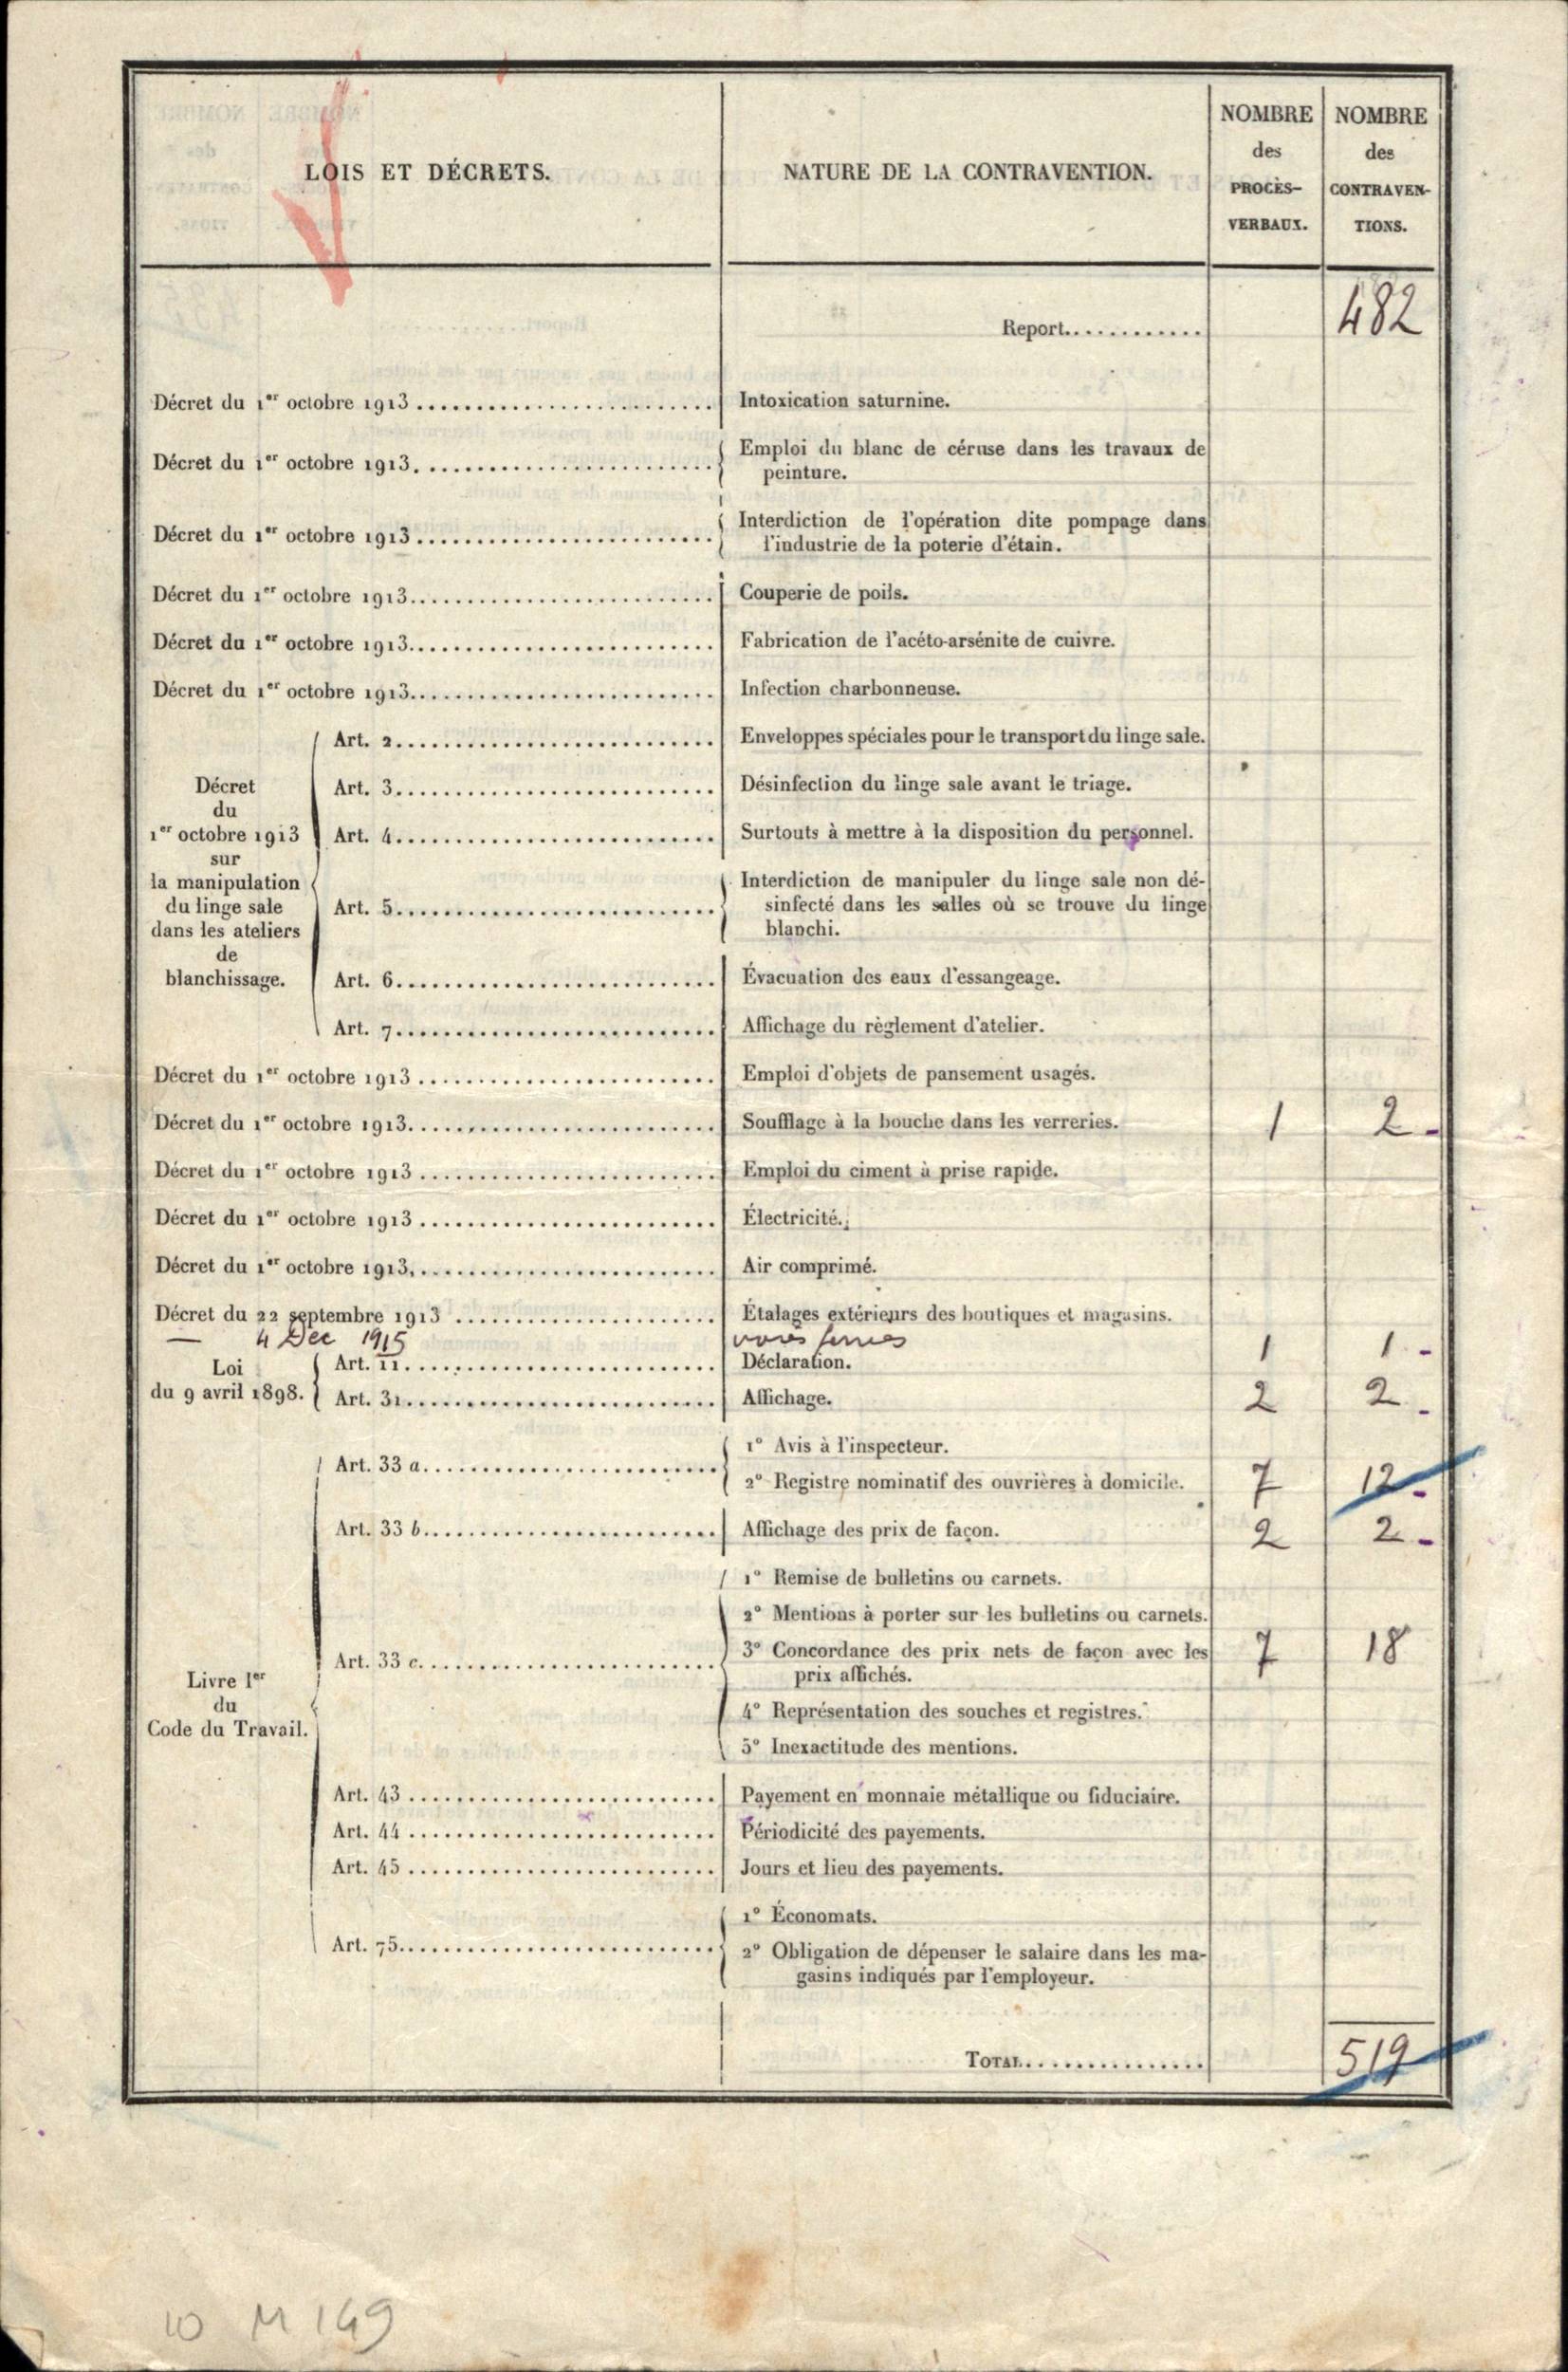 LOIS ET DÉCRETS.
NATURE DE LA CONTRAVENTION.
NOMBRE des PROCÈS-VERBAUX.
NOMBRE des CONTRAVEN-TIONS.
Report............ 482
Décret du 1er octobre 1913........................ Intoxication saturnine.
Décret du 1er octobre 1913........................ Emploi du blanc de céruse dans les travaux de
peinture.
Décret du 1er octobre 1913........................ Interdiction de l'opération dite pompage dans
l'industrie de la poterie d'étain.
Décret du 1er octobre 1913........................ Couperie de poils.
Décret du 1er octobre 1913........................ Fabrication de l'acéto-arsénite de cuivre.
Décret du 1er octobre 1913........................ Infection charbonneuse.
Décret
du
1er octobre 1913
sur
la manipulation
du linge sale
dans les ateliers
de
blanchissage.
Art. 2.......................... Enveloppes spéciales pour le transport du linge sale.
Art. 3.......................... Désinfection du linge sale avant le triage.
Art. 4.......................... Surtouts à mettre à la disposition du personnel.
Art. 5.......................... Interdiction de manipuler du linge sale non dé-
sinfecté dans les salles où se trouve du linge
blanchi.
Art. 6.......................... Évacuation des eaux d'essangeage.
Art. 7.......................... Affichage du règlement d'atelier.
Décret du 1er octobre 1913........................ Emploi d'objets de pansement usagés.
Décret du 1er octobre 1913........................ Soufflage à la bouche dans les verreries. 1 2-
Décret du 1er octobre 1913........................ Emploi du ciment à prise rapide.
Décret du 1er octobre 1913........................ Électricité.
Décret du 1er octobre 1913........................ Air comprimé.
Décret du 22 septembre 1913..................... Étalages extérieurs des boutiques et magasins.
— 4 Dec 1915 voies ferrées 1 1-
Loi
du 9 avril 1898.
Art. 11......................... Déclaration.
Art. 31......................... Affichage. 2 2-
Livre Ier
du
Code du Travail.
Art. 33 a....................... 1° Avis à l'inspecteur.
2° Registre nominatif des ouvrières à domicile. 7 12-
Art. 33 b....................... Affichage des prix de façon. 2 2-
Art. 33 c....................... 1° Remise de bulletins ou carnets.
2° Mentions à porter sur les bulletins ou carnets.
3° Concordance des prix nets de façon avec les
prix affichés. 7 18
4° Représentation des souches et registres.
5° Inexactitude des mentions.
Art. 43......................... Payement en monnaie métallique ou fiduciaire.
Art. 44......................... Périodicité des payements.
Art. 45......................... Jours et lieu des payements.
Art. 75......................... 1° Économats.
2° Obligation de dépenser le salaire dans les ma-
gasins indiqués par l'employeur.
TOTAL............... 519
10 M 149